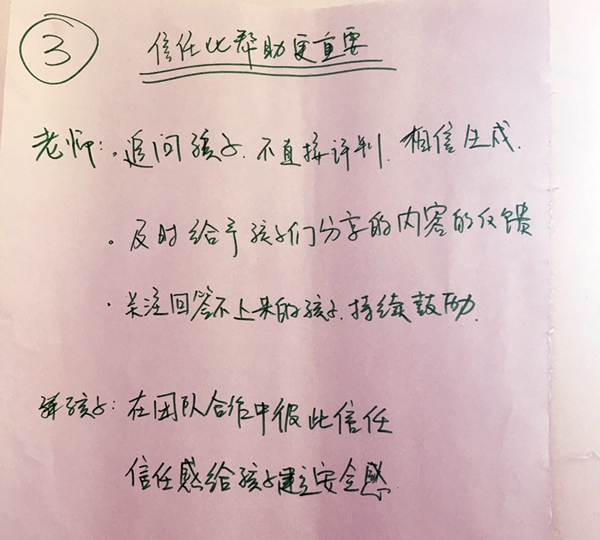 ③ 信任比帮助更重要
老师:·追问孩子.不直接评判.相信生成.
。及时给予孩子们分享的内容的反馈
·关注回答不上来的孩子.持续鼓励.
孩子:在团队合作中彼此信任
信任感给孩子建立安全感